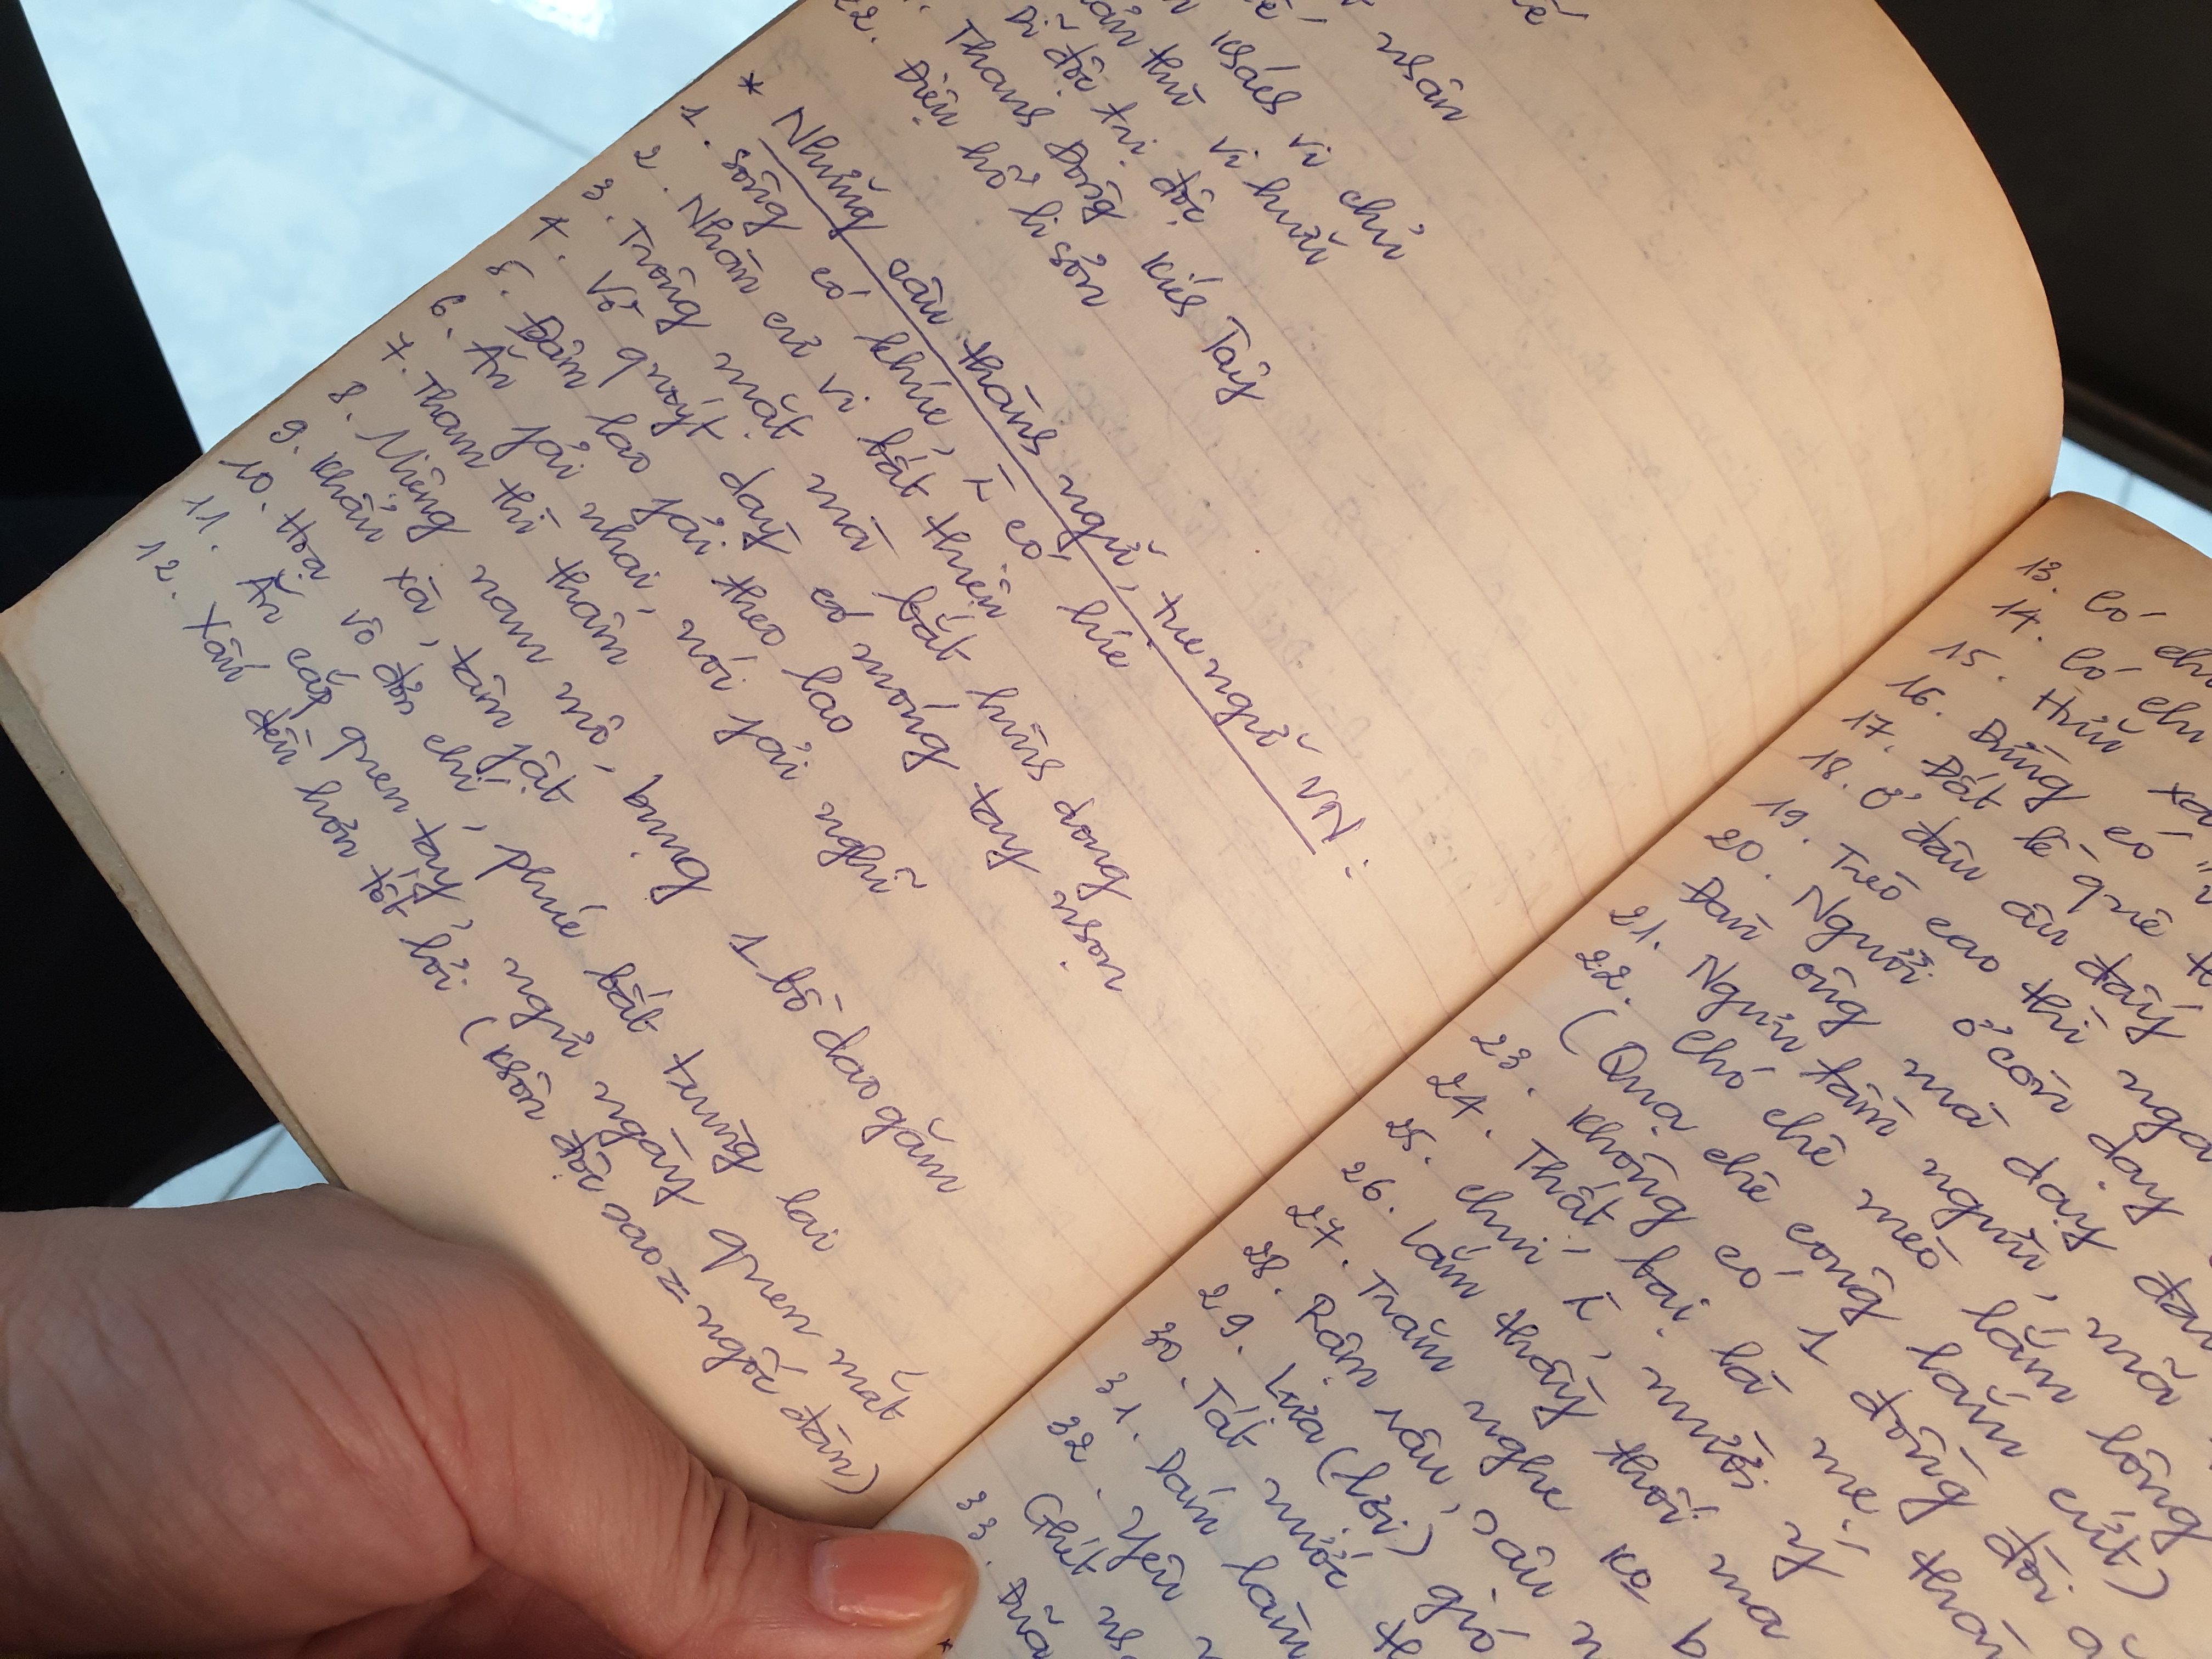 nhân
khách vi chủ
thù vi hữu
Dĩ độc trị độc
Thanh Đông kích Tây
22. Điệu hổ li sơn
* Những câu thành ngữ, tục ngữ VN:
1. Sông có khúc, ~ có lúc
2. Nhàn cư vi bất thiện
3. Trông mặt mà bắt hình dong
4. Vỏ quýt dày có móng tay nhọn
5. Đâm lao fải theo lao
6. Ăn fải nhai, nói fải nghĩ
7. Tham thì thâm
8. Miệng nam mô, bụng 1 bồ dao găm
9. Khẩu xà, tâm fật
10. Họa vô đơn chí, phúc bất trùng lai
11. Ăn cắp quen tay, ngủ ngày quen mắt
12. Xấu đều hơn tốt lỏi (khôn độc sao = ngốc đàn)
13. Có
14. Có
15. Hữu xạ
16. Đừng có
17. Đất lề quê
18. Ở đâu âu đấy
19. Trèo cao thì ngã
20. Người ở còn dạy
Đàn ông mà dạy đàn
21. Ngựa tầm ngựa, mã
22. Chó chê mèo lắm lông
(Quạ chê công lắm cứt)
23. Không có 1 đồng đòi ă
24. Thất bại là mẹ thàn
25. Chín ~, mười ý
26. Lắm thầy thối ma
27. Trăm nghe ko b
28. Rậm râu, sâu
29. Lửa (lời) gió
30. Tát nước th
31. Dám làm
32. Yêu
Ghét nh
33. Đũa